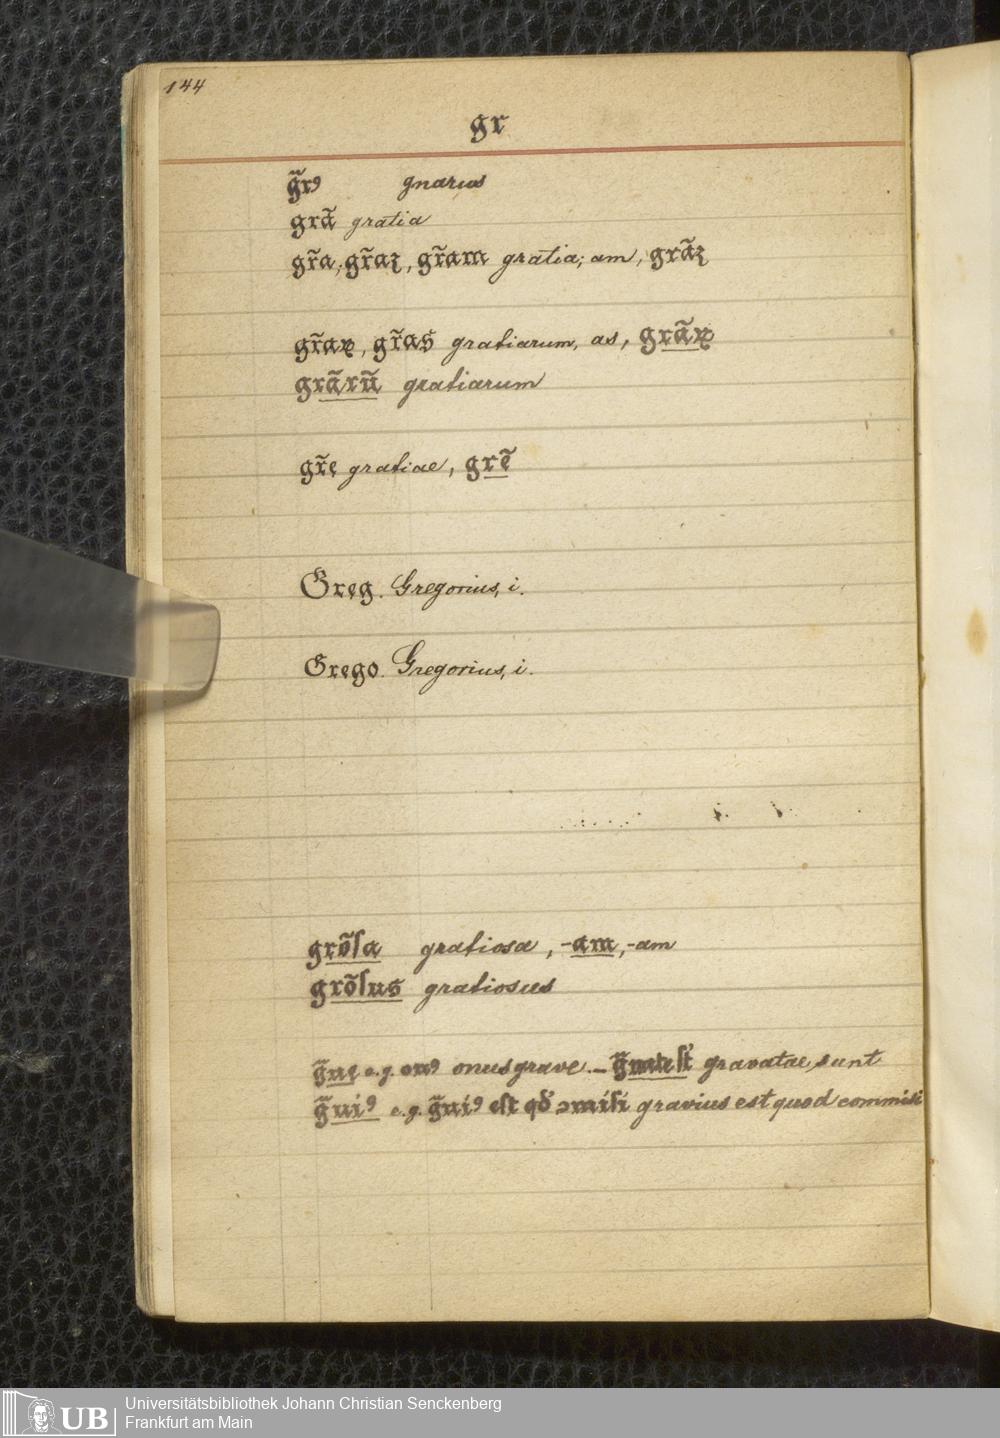 144
gr
g̃rꝰ gnarus
grã gratia
gr̃a; gr̃aȝ, gr̃am gratia; am, grãȝ
gr̃aꝝ, gr̃as gratiarum, as, grãꝝ
grãrũ gratiarum
gr̃ę gratiae, grẽ
Greg. Gregorius, i.
Grego. Gregorius, i.
grõſa gratiosa, -am, -am
grõſus gratiosus
g̃ue e.g. onꝰ onus grave. – gravatae sunt
g̃uiꝰ e.g. g̃uiꝰ eſt qđ ɔmiſi gravius est quod commisi
UB Universitätsbibliothek Johann Christian Senckenberg
Frankfurt am Main